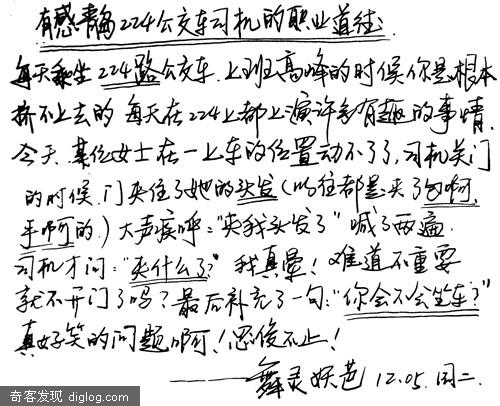 有感青岛224公交车司机的职业道德:
每天乘坐224路公交车.上班高峰的时候你是根本
挤不上去的 每天在224上都上演许多有趣的事情.
今天.某位女士在一上车的位置动不了了,司机关门
的时候.门夹住了她的头发(以往都是夹了包啊,
手啊的.)大声疾呼:"夹我头发了"喊了两遍.
司机才问:"夹什么了?"我真晕!难道不重要
就不开门了吗?最后补充了一句:"你会不会坐车?"
真好笑的问题啊!忍俊不止!
——舞灵妖芭 12.05.周二.
奇客发现 diglog.com